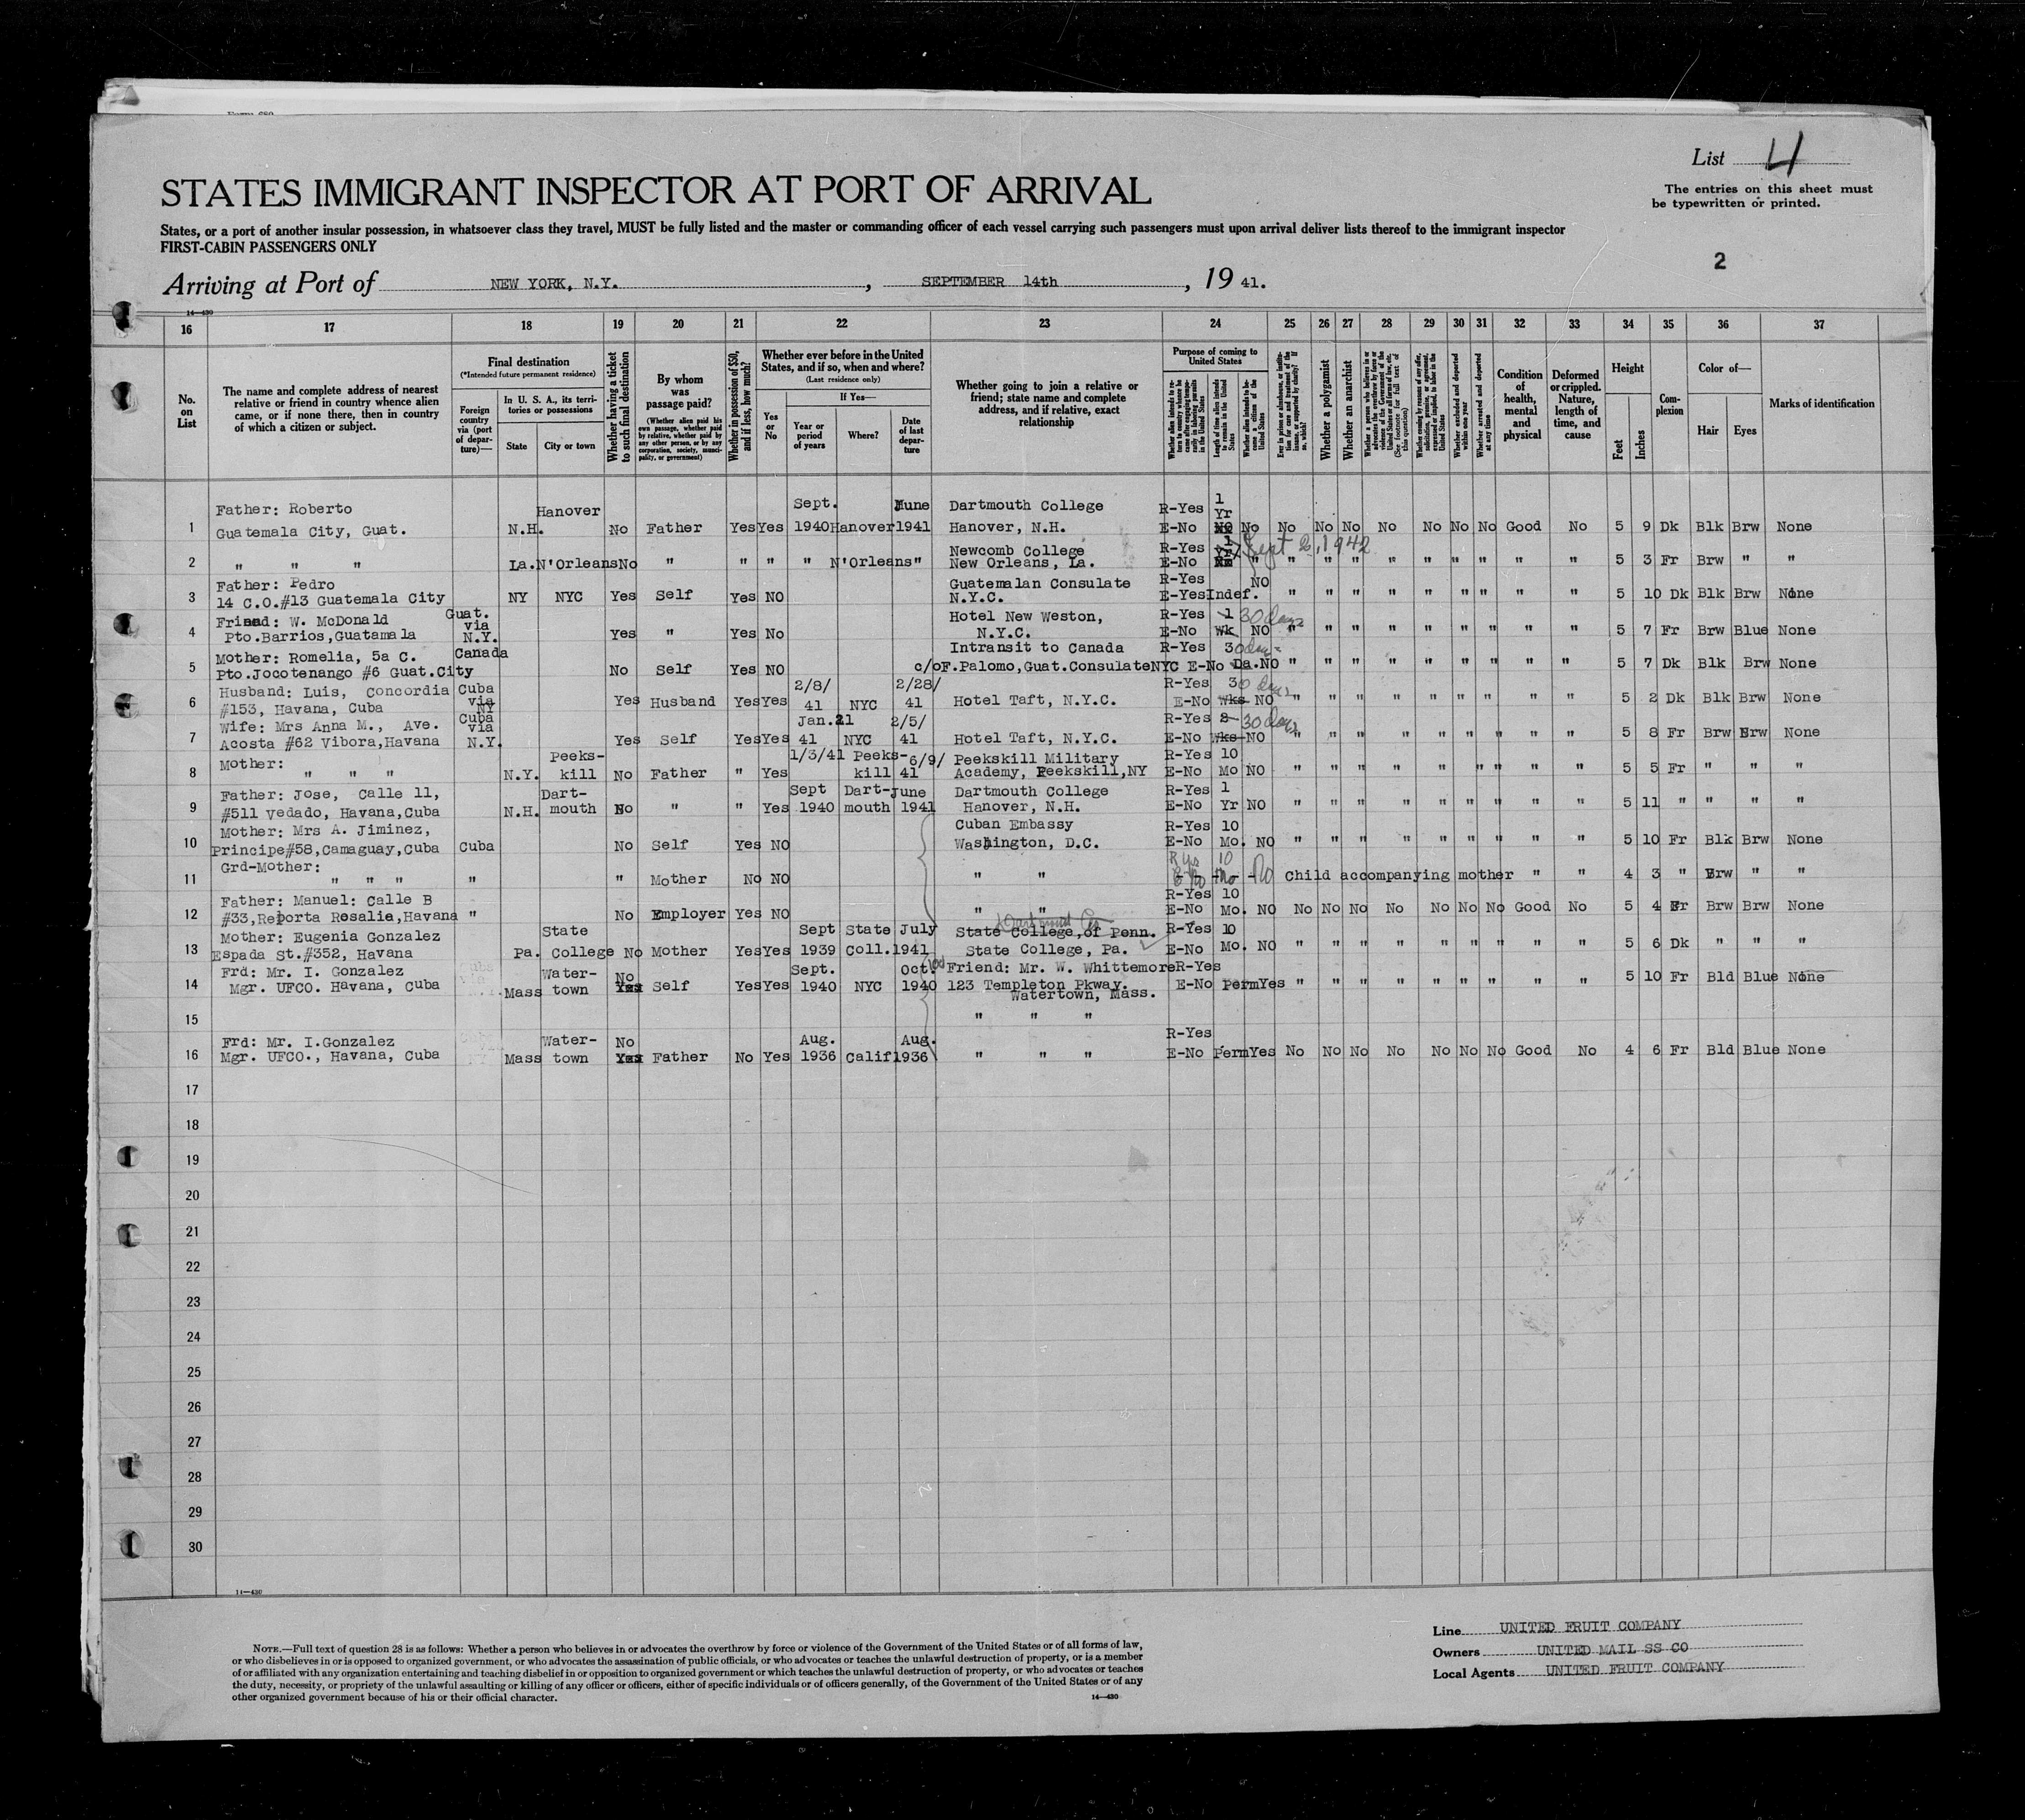 List 4
The entries on this sheet must
be typewritten or printed.
STATES IMMIGRANT INSPECTOR AT PORT OF ARRIVAL
States, or a port of another insular possession, in whatsoever class they travel, MUST be fully listed and the master or commanding officer of each vessel carrying such passengers must upon arrival deliver lists thereof to the immigrant inspector
FIRST-CABIN PASSENGERS ONLY
2
Arriving at Port of NEW YORK, N.Y. , SEPTEMBER 14th , 19 41.
14—430
16 17 18 19 20 21 22 23 24 25 26 27 28 29 30 31 32 33 34 35 36 37
No. on List
The name and complete address of nearest relative or friend in country whence alien came, or if none there, then in country of which a citizen or subject.
Final destination
(*Intended future permanent residence)
Foreign country via (port of departure)—
In U. S. A., its territories or possessions
State
City or town
Whether having a ticket to such final destination
By whom was passage paid?
(Whether alien paid his own passage, whether paid by relative, whether paid by any other person, or by any corporation, society, municipality, or government)
Whether in possession of $50, and if less, how much?
Whether ever before in the United States, and if so, when and where?
(Last residence only)
Yes or No
If Yes—
Year or period of years
Where?
Date of last departure
Whether going to join a relative or friend; state name and complete address, and if relative, exact relationship
Purpose of coming to United States
Length of time alien intends to remain in the United States
Whether alien intends to become a citizen of the United States
Whether a polygamist
Whether an anarchist
Whether excluded and deported within one year
Whether arrested and deported at any time
Condition of health, mental and physical
Deformed or crippled. Nature, length of time, and cause
Height
Feet
Inches
Complexion
Color of—
Hair
Eyes
Marks of identification
1 Father: Roberto Guatemala City, Guat. N.H. Hanover No Father Yes Yes Sept. 1940 Hanover June 1941 Dartmouth College Hanover, N.H. R-Yes E-No 1 Yr No No No No No No No No Good No 5 9 Dk Blk Brw None
2 " " " La. N'Orleans No " " " " N'Orleans " Newcomb College New Orleans, La. R-Yes E-No 1 Yr Sept 2, 1942 " " " " " " " " " " 5 3 Fr Brw " "
3 Father: Pedro 14 C.O.#13 Guatemala City NY NYC Yes Self Yes NO Guatemalan Consulate N.Y.C. R-Yes E-Yes Indef. NO " " " " " " " " " 5 10 Dk Blk Brw None
4 Friend: W. McDonald Pto.Barrios,Guatamala Guat. via N.Y. Yes " Yes No Hotel New Weston, N.Y.C. R-Yes E-No 1 Wk 30 days NO " " " " " " " " " 5 7 Fr Brw Blue None
5 Mother: Romelia, 5a C. Pto.Jocotenango #6 Guat.City Canada No Self Yes NO Intransit to Canada c/oF.Palomo,Guat.ConsulateNYC R-Yes E-No 30 days Da. NO " " " " " " " " " 5 7 Dk Blk Brw None
6 Husband: Luis, Concordia #153, Havana, Cuba Cuba via NY Yes Husband Yes Yes 2/8/ 41 NYC 2/28/ 41 Hotel Taft, N.Y.C. R-Yes E-No 3 Wks 30 days NO " " " " " " " " " 5 2 Dk Blk Brw None
7 Wife: Mrs Anna M., Ave. Acosta #62 Vibora,Havana Cuba via N.Y. Yes Self Yes Yes Jan.21 41 NYC 2/5/ 41 Hotel Taft, N.Y.C. R-Yes E-No 2 Wks 30 days NO " " " " " " " " " 5 8 Fr Brw Brw None
8 Mother: " " " N.Y. Peekskill No Father " Yes 1/3/41 Peekskill 6/9/ 41 Peekskill Military Academy, Peekskill,NY R-Yes E-No 10 Mo NO " " " " " " " " " 5 5 Fr " " "
9 Father: Jose, Calle 11, #511 Vedado, Havana,Cuba N.H. Dartmouth No " " Yes Sept 1940 Dartmouth June 1941 Dartmouth College Hanover, N.H. R-Yes E-No 1 Yr NO " " " " " " " " " 5 11 " " " "
10 Mother: Mrs A. Jiminez, Principe#58,Camaguay,Cuba Cuba No Self Yes NO Cuban Embassy Washington, D.C. R-Yes E-No 10 Mo. NO " " " " " " " " " 5 10 Fr Blk Brw None
11 Grd-Mother: " " " " " Mother No NO " " R Yes E No 10 Mo No Child accompanying mother " " 4 3 " Brw " "
12 Father: Manuel: Calle B #33,Reporta Rosalie,Havana " No Employer Yes NO " " R-Yes E-No 10 Mo. NO No No No No No No No Good No 5 4 Fr Brw Brw None
13 Mother: Eugenia Gonzalez Espada St.#352, Havana Pa. State College No Mother Yes Yes Sept 1939 State Coll. July 1941 State College,of Penn. State College, Pa. R-Yes E-No 10 Mo. NO " " " " " " " " " 5 6 Dk " " "
14 Frd: Mr. I. Gonzalez Mgr. UFCO. Havana, Cuba Mass Watertown No Yes Self Yes Yes Sept. 1940 NYC Oct. 1940 Friend: Mr. W. Whittemore 123 Templeton Pkway. Watertown, Mass. R-Yes E-No Perm Yes " " " " " " " " " 5 10 Fr Bld Blue None
15 " " "
16 Frd: Mr. I.Gonzalez Mgr. UFCO., Havana, Cuba Mass Watertown No Yes Father No Yes Aug. 1936 Calif Aug. 1936 " " " R-Yes E-No Perm Yes No No No No No No No Good No 4 6 Fr Bld Blue None
17
18
19
20
21
22
23
24
25
26
27
28
29
30
14—430
NOTE.—Full text of question 28 is as follows: Whether a person who believes in or advocates the overthrow by force or violence of the Government of the United States or of all forms of law,
or who disbelieves in or is opposed to organized government, or who advocates the assassination of public officials, or who advocates or teaches the unlawful destruction of property, or is a member
of or affiliated with any organization entertaining and teaching disbelief in or opposition to organized government or which teaches the unlawful destruction of property, or who advocates or teaches
the duty, necessity, or propriety of the unlawful assaulting or killing of any officer or officers, either of specific individuals or of officers generally, of the Government of the United States or of any
other organized government because of his or their official character.
14—430
Line UNITED FRUIT COMPANY
Owners UNITED MAIL SS CO
Local Agents UNITED FRUIT COMPANY